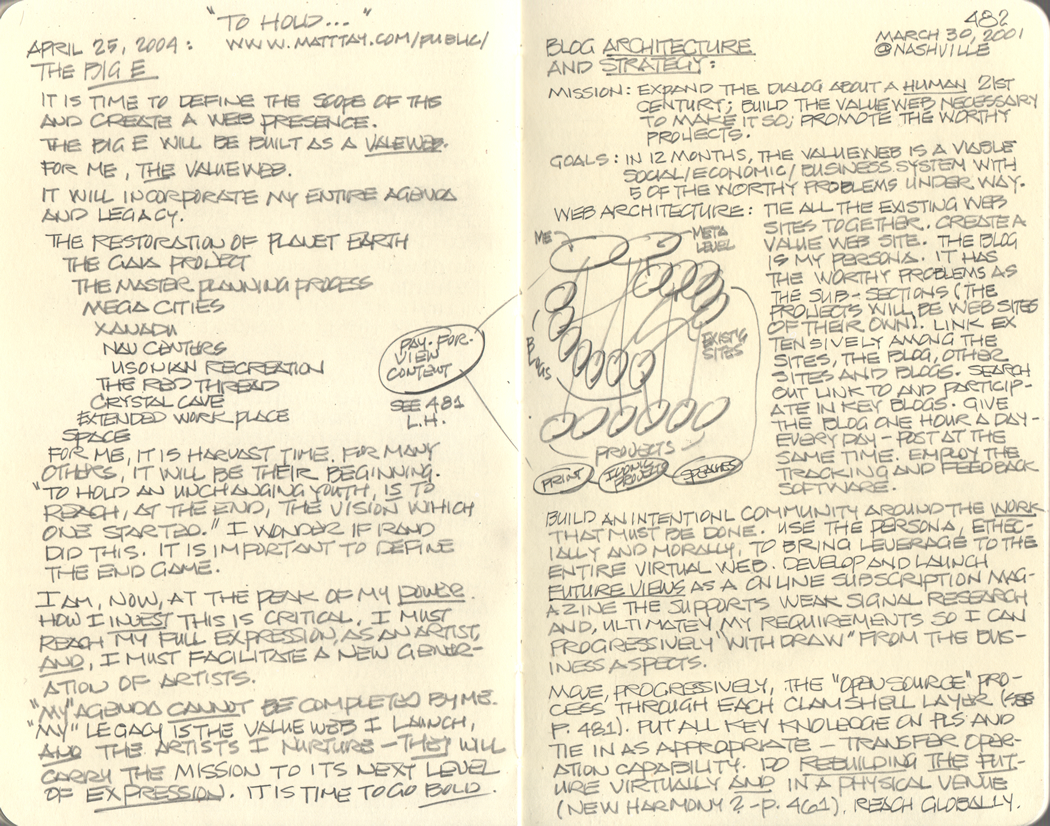 "TO HOLD..."
APRIL 25, 2004: WWW.MATTTAY.COM/PUBLIC/
THE BIG E
IT IS TIME TO DEFINE THE SCOPE OF THS
AND CREATE A WEB PRESENCE.
THE BIG E WILL BE BUILT AS A VALEWEB.
FOR ME, THE VALUEWEB.
IT WILL INCORPORATE MY ENTIRE AGENDA
AND LEGACY.
THE RESTORATION OF PLANET EARTH
THE GAIA PROJECT
THE MASTER PLANNING PROCESS
MEGA CITIES
XANADU
NAV CENTERS
USONIAN RECREATION
THE RED THREAD
CRYSTAL CAVE
EXTENDED WORK PLACE
SPACE
FOR ME, IT IS HARVAST TIME. FOR MANY
OTHERS, IT WILL BE THEIR BEGINNING.
"TO HOLD AN UNCHANGING YOUTH, IS TO
REACH, AT THE END, THE VISION WHICH
ONE STARTED." I WONDER IF RAND
DID THIS. IT IS IMPORTANT TO DEFINE
THE END GAME.
I AM, NOW, AT THE PEAK OF MY POWER.
HOW I INVEST THIS IS CRITICAL. I MUST
REACH MY FULL EXPRESSION, AS AN ARTIST,
AND, I MUST FACILITATE A NEW GENER-
ATION OF ARTISTS.
"MY" AGENDA CANNOT BE COMPLETED BY ME.
"MY" LEGACY IS THE VALUE WEB I LAUNCH,
AND THE ARTISTS I NURTURE – THEY WILL
CARRY THE MISSION TO ITS NEXT LEVEL
OF EXPRESSION. IT IS TIME TO GO BOLD.
PAY-FOR-
VIEW
CONTENT
SEE 481
L.H.
482
MARCH 30, 2001
@NASHVILLE
BLOG ARCHITECTURE
AND STRATEGY:
MISSION: EXPAND THE DIALOG ABOUT A HUMAN 21ST
CENTURY; BUILD THE VALUE WEB NECESSARY
TO MAKE IT SO; PROMOTE THE WORTHY
PROJECTS.
GOALS: IN 12 MONTHS, THE VALUEWEB IS A VIABLE
SOCIAL/ECONOMIC/BUSINESS SYSTEM WITH
5 OF THE WORTHY PROBLEMS UNDER WAY.
WEB ARCHITECTURE: TIE ALL THE EXISTING WEB
SITES TOGETHER. CREATE A
VALUE WEB SITE. THE BLOG
IS MY PERSONA. IT HAS
THE WORTHY PROBLEMS AS
THE SUB-SECTIONS (THE
PROJECTS WILL BE WEB SITES
OF THEIR OWN). LINK EX
TENSIVELY AMONG THE
SITES, THE BLOG, OTHER
SITES AND BLOGS. SEARCH
OUT LINK TO AND PARTICIP-
ATE IN KEY BLOGS. GIVE
THE BLOG ONE HOUR A DAY–
EVERY DAY – POST AT THE
SAME TIME. EMPLOY THE
TRACKING AND FEEDBACK
SOFTWARE.
ME
META
LEVEL
BLOGS
EXISTG
SITES
PROJECTS
PRINT
PROJECTS
BUILD AN INTENTIONL COMMUNITY AROUND THE WORK
THAT MUST BE DONE. USE THE PERSONA, ETHEC-
IALLY AND MORALLY, TO BRING LEVERAGE TO THE
ENTIRE VIRTUAL WEB. DEVELOP AND LAUNCH
FUTURE VIEWS AS A ON LINE SUBSCRIPTION MAG-
AZINE THE SUPPORTS WEAK SIGNAL RESEARCH
AND, ULTIMATEY, MY REQUIREMENTS SO I CAN
PROGRESSIVELY "WITH DRAW" FROM THE BUS-
INESS ASPECTS.
MOVE, PROGRESSIVELY, THE "OPEN SOURCE" PRO-
CESS THROUGH EACH CLAM SHELL LAYER (SEE
P. 481). PUT ALL KEY KNOLEDGE ON PLS AND
TIE IN AS APPROPRIATE – TRANSFER OPER-
ATION CAPABILITY. DO REBUILDING THE FUT-
URE VIRTUALLY AND IN A PHYSICAL VENUE
(NEW HARMONY ? – P. 461). REACH GLOBALLY.